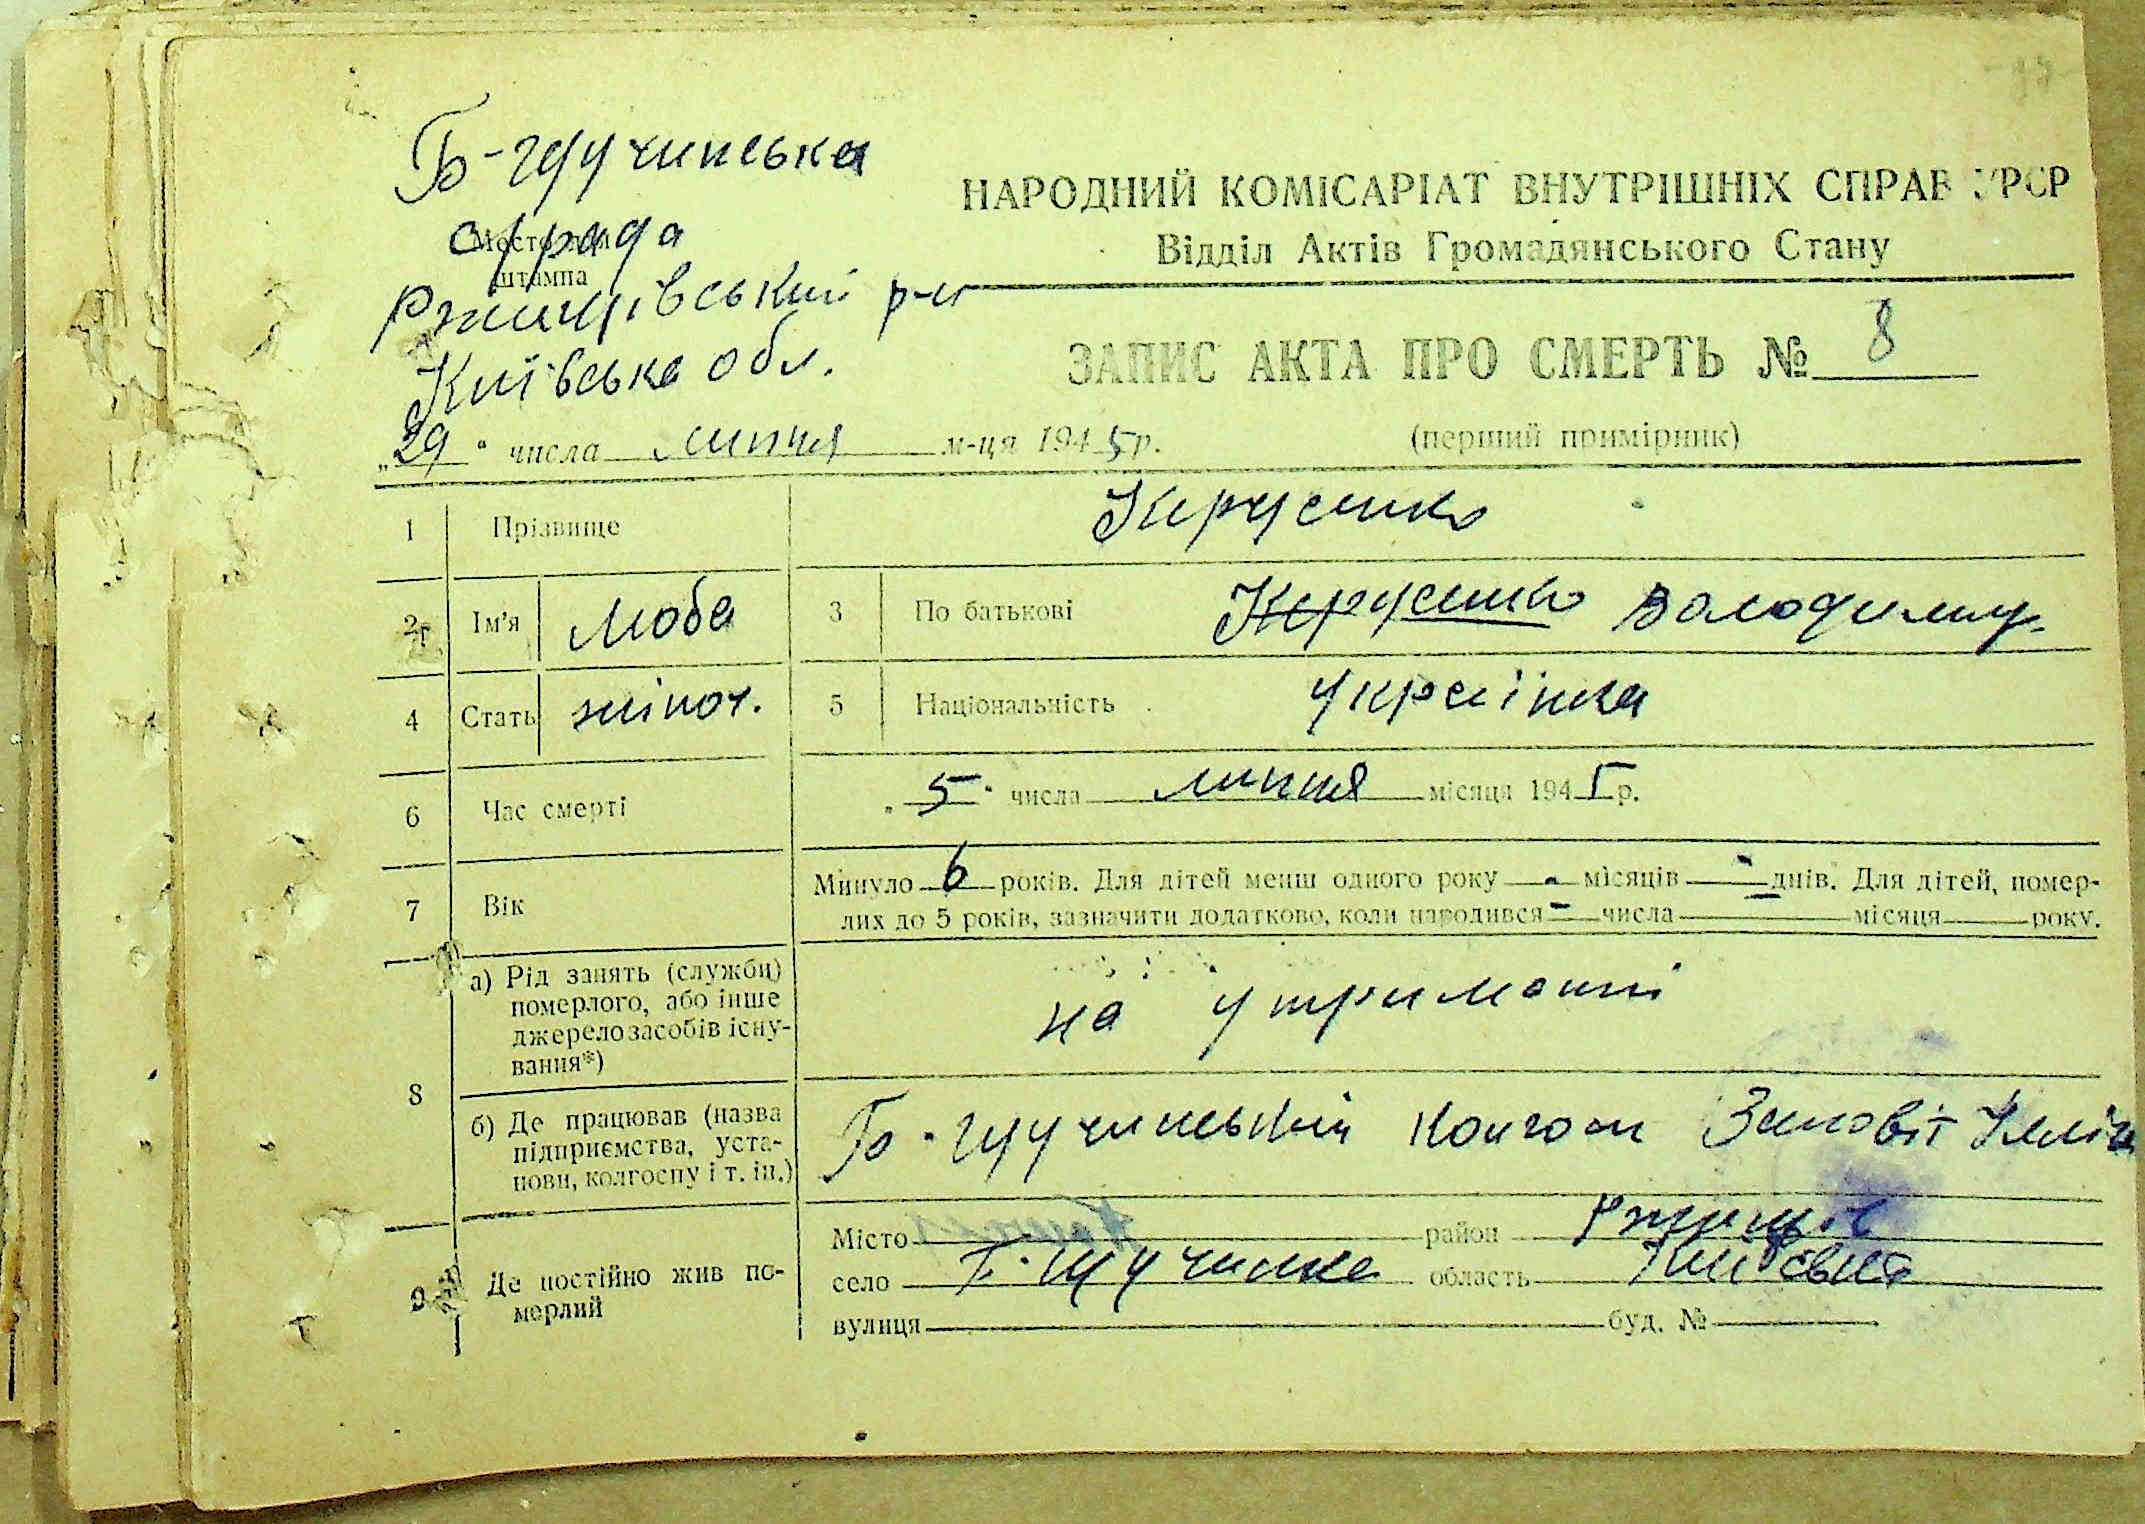 Б-щучинська
с/рада
Место для
штампа
Ржищівський р-н
Київська обл.
НАРОДНИЙ КОМІСАРІАТ ВНУТРІШНІХ СПРАВ УРСР
Відділ Актів Громадянського Стану
ЗАПИС АКТА ПРО СМЕРТЬ № 8
(перший примірник)
„29“ числа липня м-ця 1945 р.
1 Прізвище
2 Ім'я Люба 3 По батькові Володимир.
4 Стать жіноч. 5 Національність Українка
6 Час смерті „5“ числа липня місяця 1945 р.
7 Вік Минуло 6 років. Для дітей менш одного року - місяців - днів. Для дітей, помер-
лих до 5 років, зазначити додатково, коли народився - числа місяця року.
8 а) Рід занять (служби)
померлого, або інше
джерело засобів існу-
вання*)
на утриманні
б) Де працював (назва
підприємства, уста-
нови, колгоспу і т. ін.)
Б-щучинський колгосп Заповіт Ілліча
9 Де постійно жив по-
мерлий
Місто район Ржищів
село Б-щучинка область Київська
вулиця буд. №